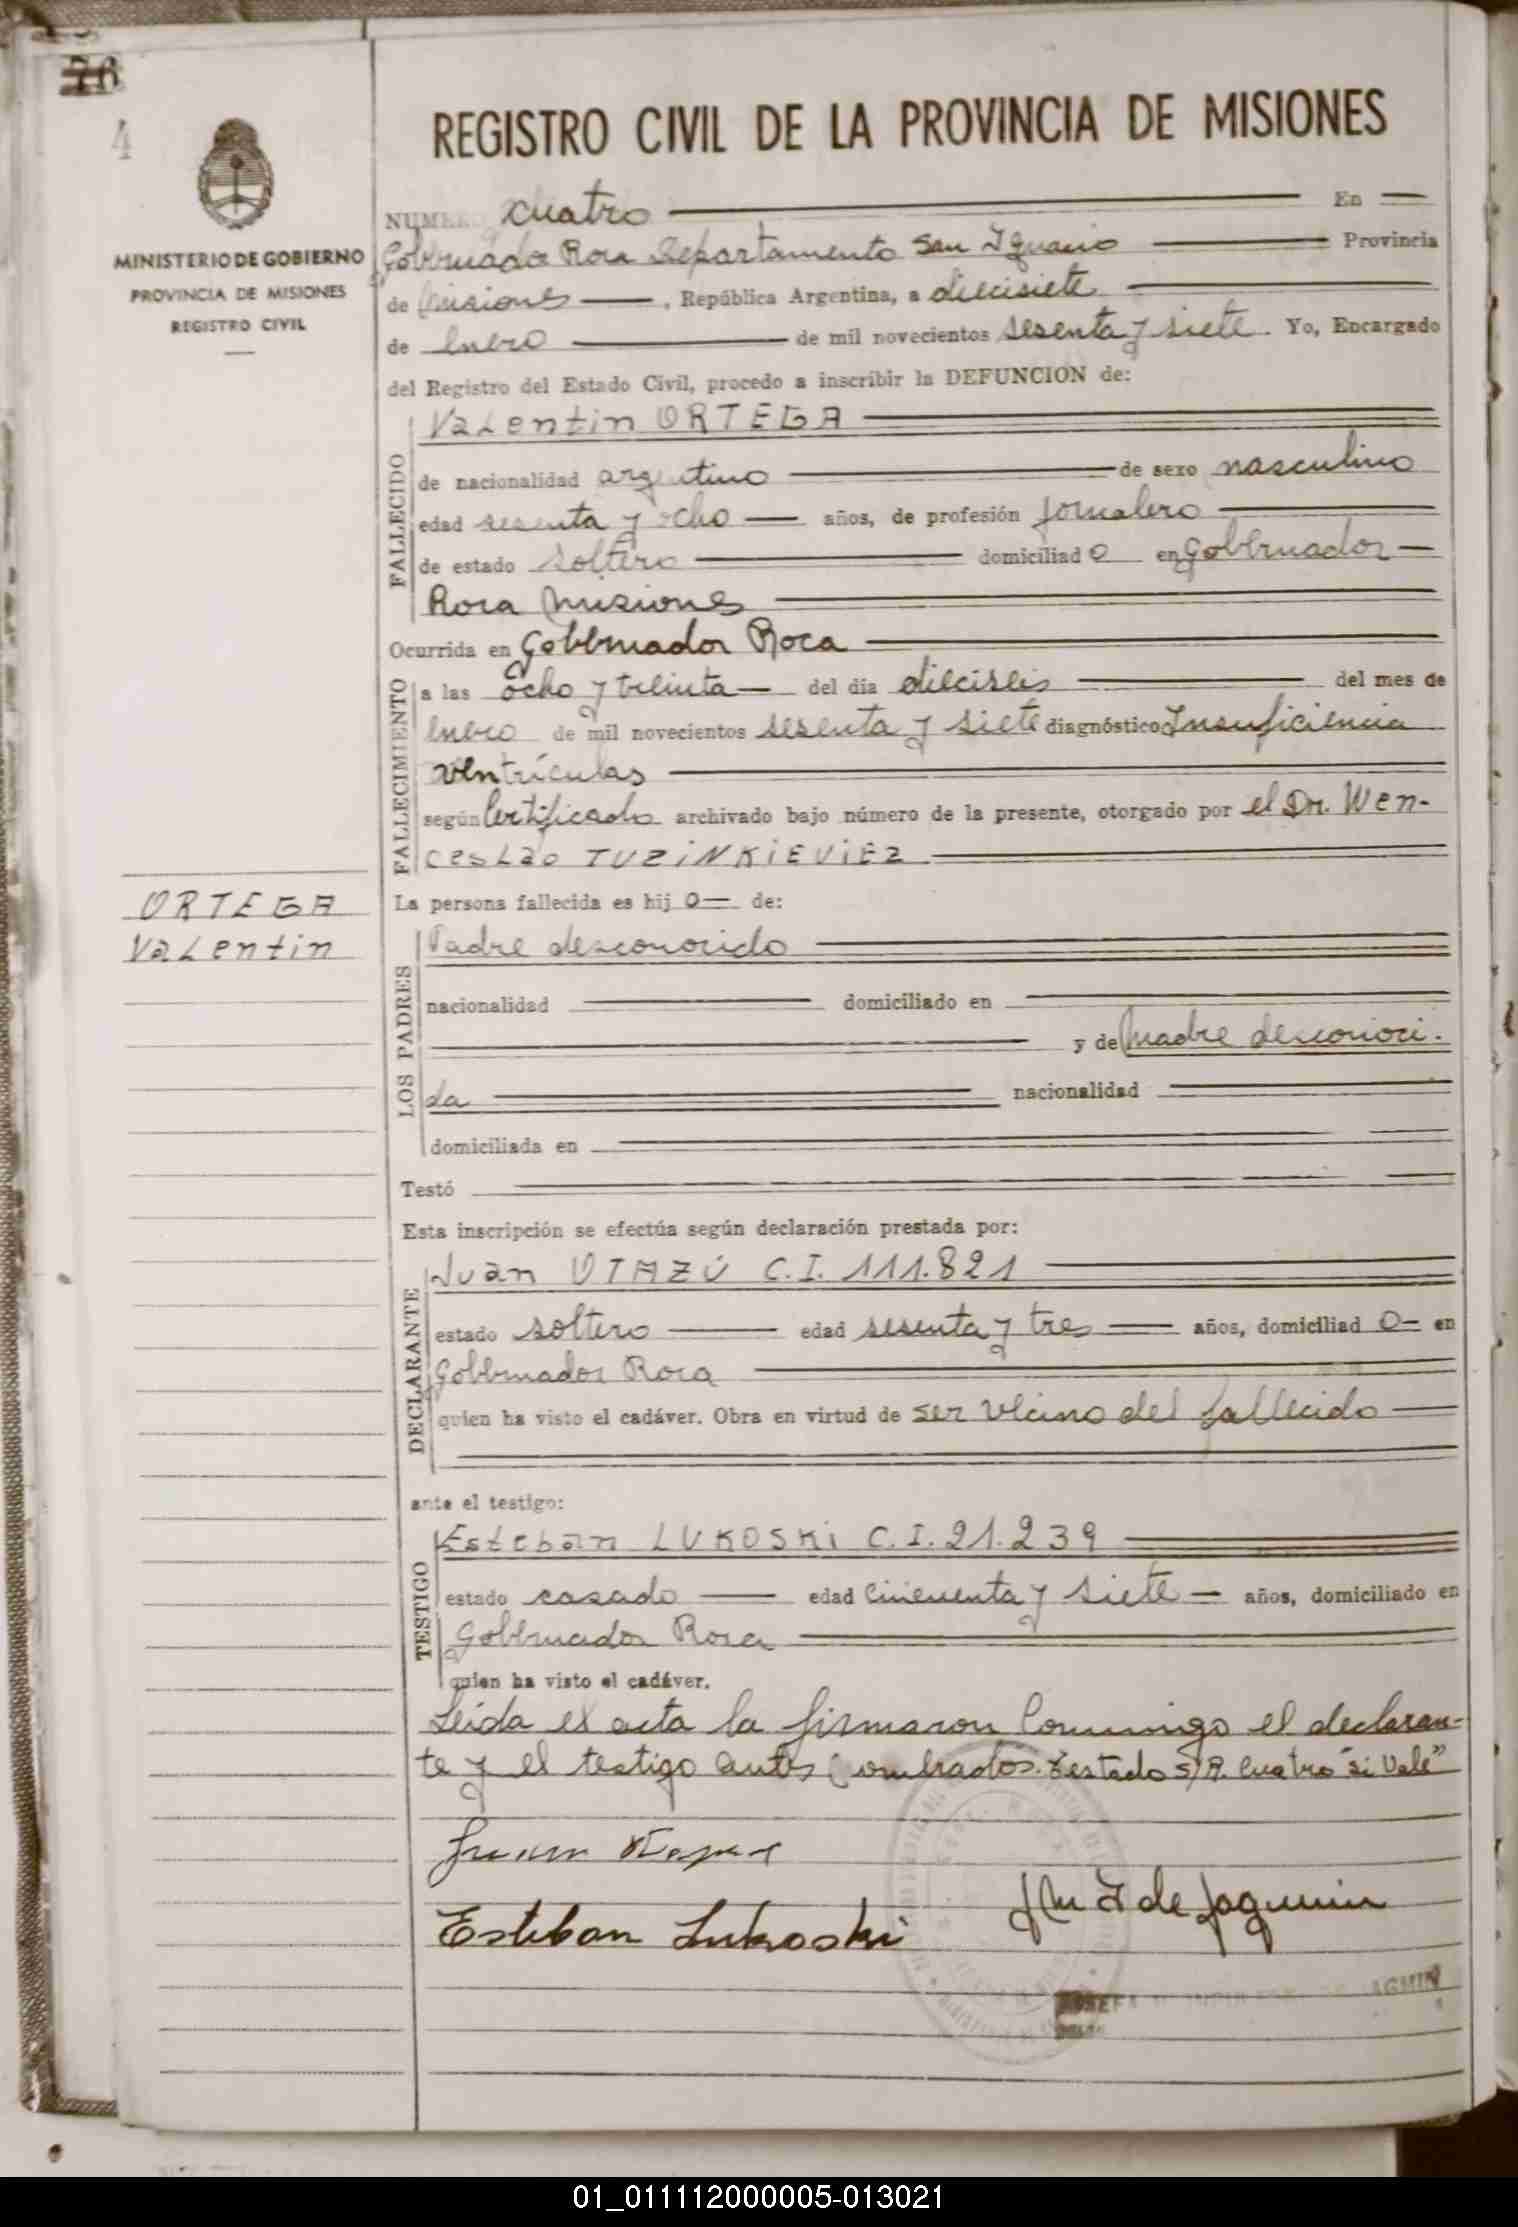 76
4
REGISTRO CIVIL DE LA PROVINCIA DE MISIONES
MINISTERIO DE GOBIERNO
PROVINCIA DE MISIONES
REGISTRO CIVIL
NUMERO cuatro En
Gobernador Roca Departamento San Ignacio Provincia
de Misiones, República Argentina, a diecisiete
de Enero de mil novecientos sesenta y siete. Yo, Encargado
del Registro del Estado Civil, procedo a inscribir la DEFUNCION de:
FALLECIDO
Valentin ORTEGA
de nacionalidad argentino de sexo masculino
edad sesenta y ocho años, de profesión Jornalero
de estado soltero domiciliado en Gobernador
Roca Misiones
Ocurrida en Gobernador Roca
FALLECIMIENTO
a las ocho y treinta del día dieciseis del mes de
Enero de mil novecientos sesenta y siete diagnóstico Insuficiencia
ventrículas
según Certificado archivado bajo número de la presente, otorgado por el Dr. Wen-
ceslao TUZINKIEVIEZ
ORTEGA
Valentin
La persona fallecida es hijo de:
LOS PADRES
Padre desconocido
nacionalidad domiciliado en
y de Madre desconoci-
da nacionalidad
domiciliada en
Testó
Esta inscripción se efectúa según declaración prestada por:
DECLARANTE
Juan OTAZÚ C.I. 111.821
estado soltero edad sesenta y tres años, domiciliado en
Gobernador Roca
quien ha visto el cadáver. Obra en virtud de ser vecino del fallecido
ante el testigo:
TESTIGO
Esteban LUKOSKI C.I. 21.239
estado casado edad cincuenta y siete años, domiciliado en
Gobernador Roca
quien ha visto el cadáver.
Leida el acta la firmaron conmigo el declaran-
te y el testigo antes nombrados. Testado S/R. cuatro "Si Vale"
Juan
Esteban Lukoski
de Jagmin
JAGMIN
01_011112000005-013021